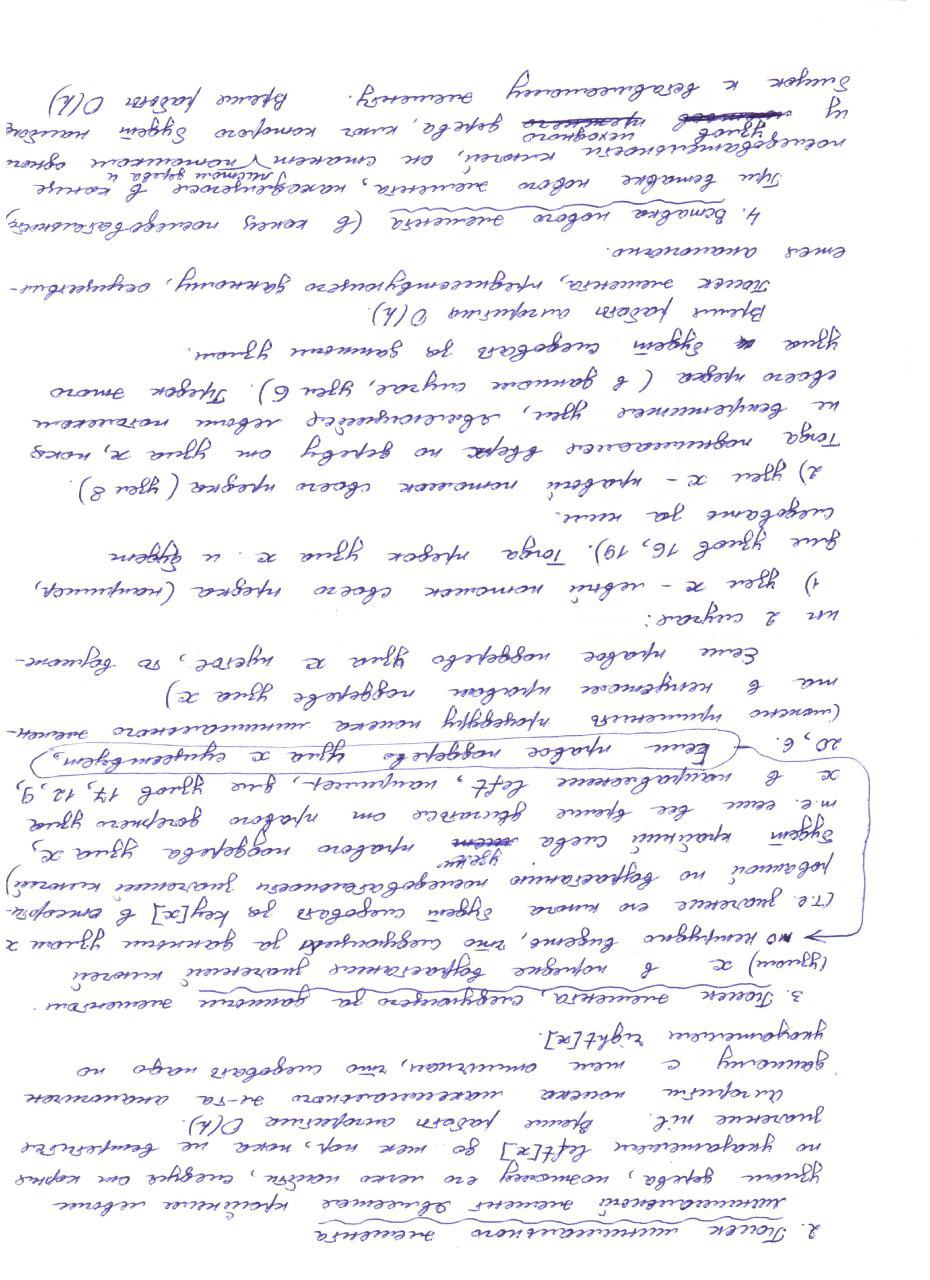 2. Поиск минимального элемента
минимальный элемент является крайним левым
узлом дерева, поэтому его легко найти, следуя от корня
по указателям left[x] до тех пор, пока не встретится
значение nil. Время работы алгоритма O(h).
Алгоритм поиска максимального эл-та аналогичен
данному с тем отличием, что следовать надо по
указателям right[x].
3. Поиск элемента, следующего за данным элементом
(узлом) x в порядке возрастания значений ключей
то Нетрудно видеть, что следующий за данным узлом x
(т.е. значение его ключа будет следовать за key[x] в отсорти-
рованной по возрастанию последовательности значений ключей)
узел
будет крайний слева лист правого поддерева узла x,
т.е. если все время двигаться от правого дочернего узла
x в направление left, например, для узлов 17, 12, 9,
20, 6. – Если правое поддерево узла x существует,
(можно применить процедуру поиска минимального элемен-
та в непустом правом поддереве узла x)
Если правое поддерево узла x пустое, то возмож-
ны 2 случая:
1) узел x – левый потомок своего предка (например,
для узлов 16, 19). Тогда предок узла x и будет
следовать за ним.
2) узел x – правый потомок своего предка (узел 8).
Тогда поднимаемся вверх по дереву от узла x, пока
не встретится узел, являющийся левым потомком
своего предка (в данном случае, узел 6). Предок этого
узла будет следовать за данным узлом.
Время работы алгоритма O(h).
Поиск элемента, предшествующего данному, осуществля-
ется аналогично.
4. Вставка нового элемента (в конец последовательности,
При вставке нового элемента, находящегося в конце
листом дерева и
последовательности ключей, он станет потомком одного
узлов исходного
из листьев прежнего дерева, ключ которого будет наиболе
близок к вставляемому элементу. Время работы O(h)